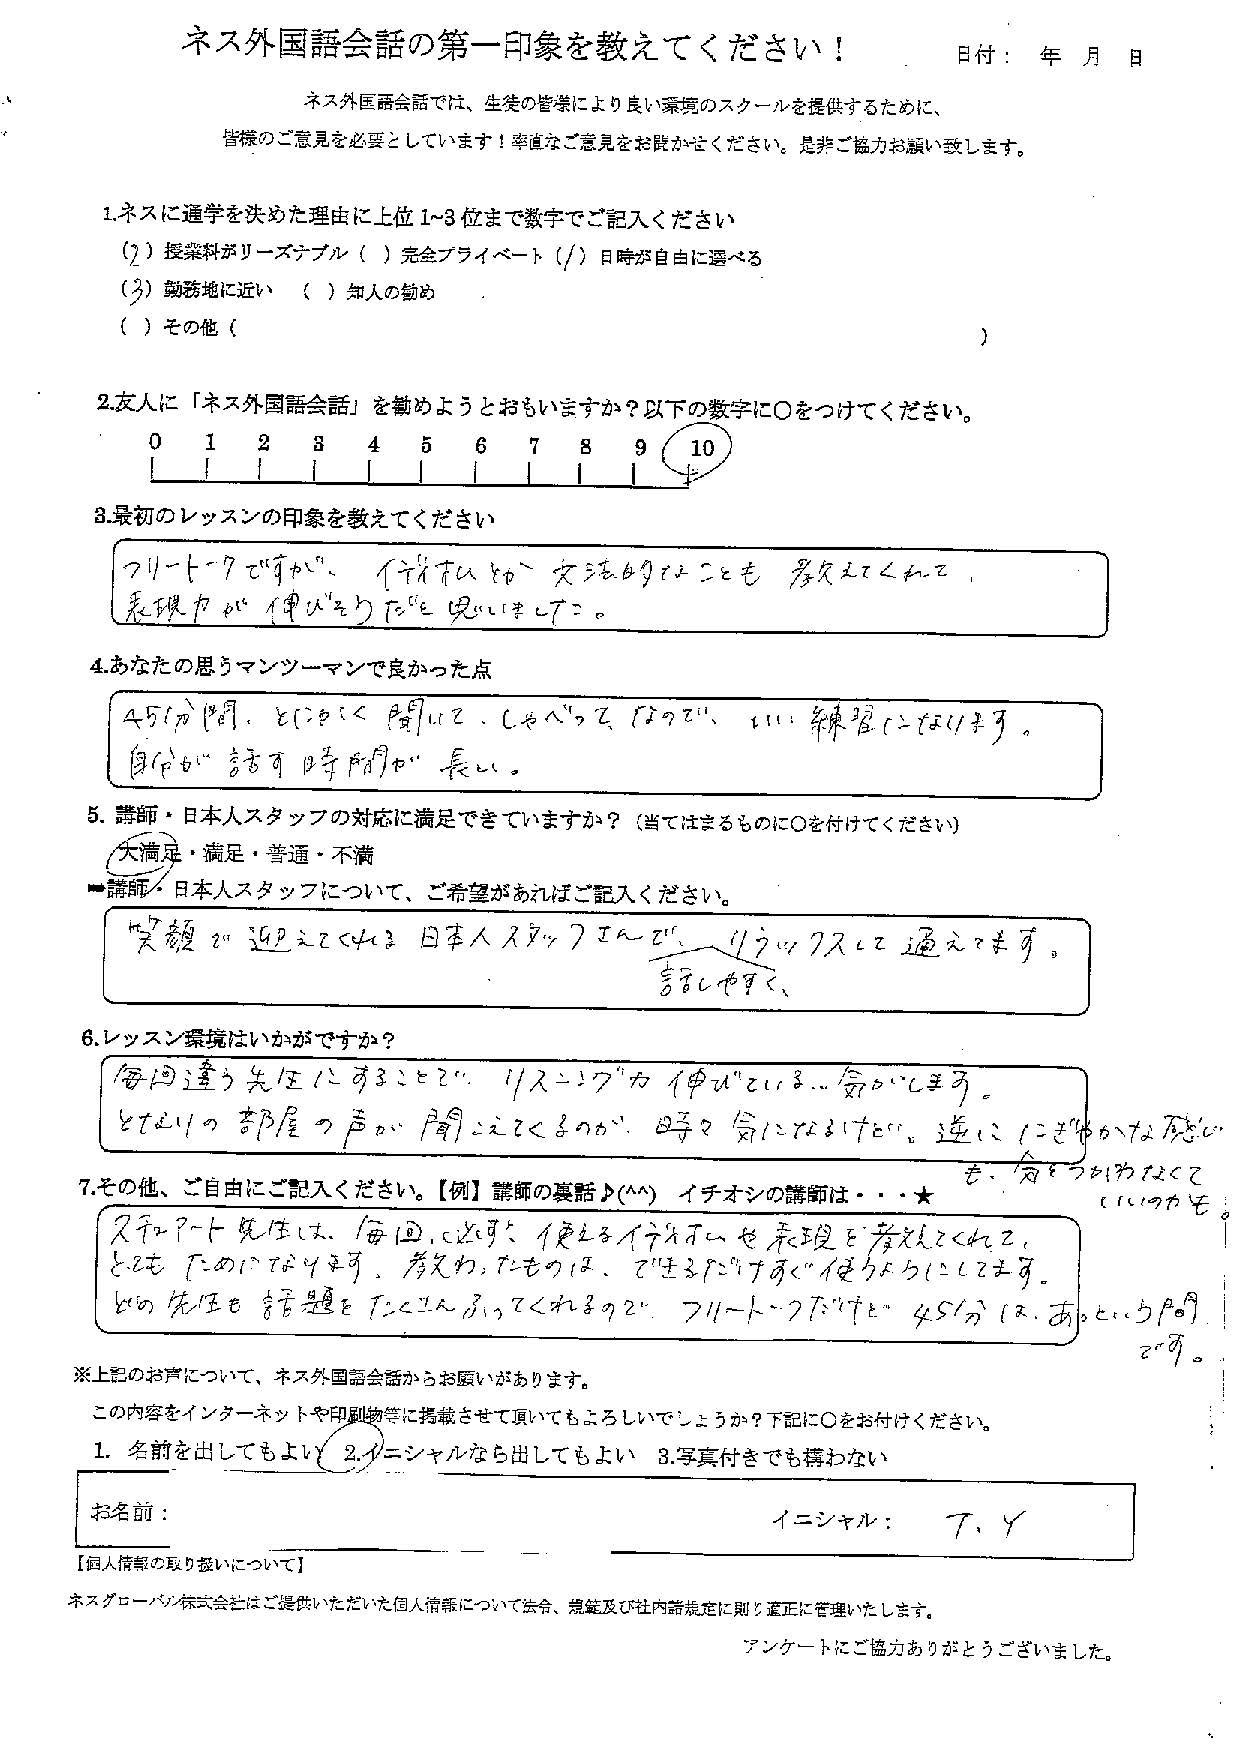 ネス外国語会話の第一印象を教えてください！
日付： 年 月 日
ネス外国語会話では、生徒の皆様により良い環境のスクールを提供するために、
皆様のご意見を必要としています！率直なご意見をお聞かせください。是非ご協力お願い致します。
1.ネスに通学を決めた理由に上位 1~3 位まで数字でご記入ください
(2) 授業料がリーズナブル ( ) 完全プライベート (1) 日時が自由に選べる
(3) 勤務地に近い ( ) 知人の勧め
( ) その他 ( )
2.友人に「ネス外国語会話」を勧めようとおもいますか？以下の数字に〇をつけてください。
0 1 2 3 4 5 6 7 8 9 10
3.最初のレッスンの印象を教えてください
フリートークですが、イディオムとか文法的なことも教えてくれて、
表現力が伸びそうだと思いました。
4.あなたの思うマンツーマンで良かった点
45分間、とにかく聞いて、しゃべって、なので、いい練習になります。
自分が話す時間が長い。
5. 講師・日本人スタッフの対応に満足できていますか？（当てはまるものに〇を付けてください）
大満足・満足・普通・不満
➡講師・日本人スタッフについて、ご希望があればご記入ください。
笑顔で迎えてくれる日本人スタッフさんで、リラックスして通えてます。
話しやすく、
6.レッスン環境はいかがですか？
毎回違う先生にすることで、リスニング力伸びている…気がします。
となりの部屋の声が聞こえてくるのが、時々気になるけど。逆ににぎやかな感じ
も、気をつかわなくて
いいのかも。
7.その他、ご自由にご記入ください。【例】講師の裏話♪(^^) イチオシの講師は・・・★
スチュアート先生は、毎回、必ず、使えるイディオムや表現を教えてくれて、
とてもためになります。教わったものは、できるだけすぐ使うようにしてます。
どの先生も話題をたくさんふってくれるので、フリートークだけど45分は、あっという間
です。
※上記のお声について、ネス外国語会話からお願いがあります。
この内容をインターネットや印刷物等に掲載させて頂いてもよろしいでしょうか？下記に〇をお付けください。
1. 名前を出してもよい 2.イニシャルなら出してもよい 3.写真付きでも構わない
お名前： イニシャル： T. Y
【個人情報の取り扱いについて】
ネスグローバル株式会社はご提供いただいた個人情報について法令、規範及び社内諸規定に則り適正に管理いたします。
アンケートにご協力ありがとうございました。